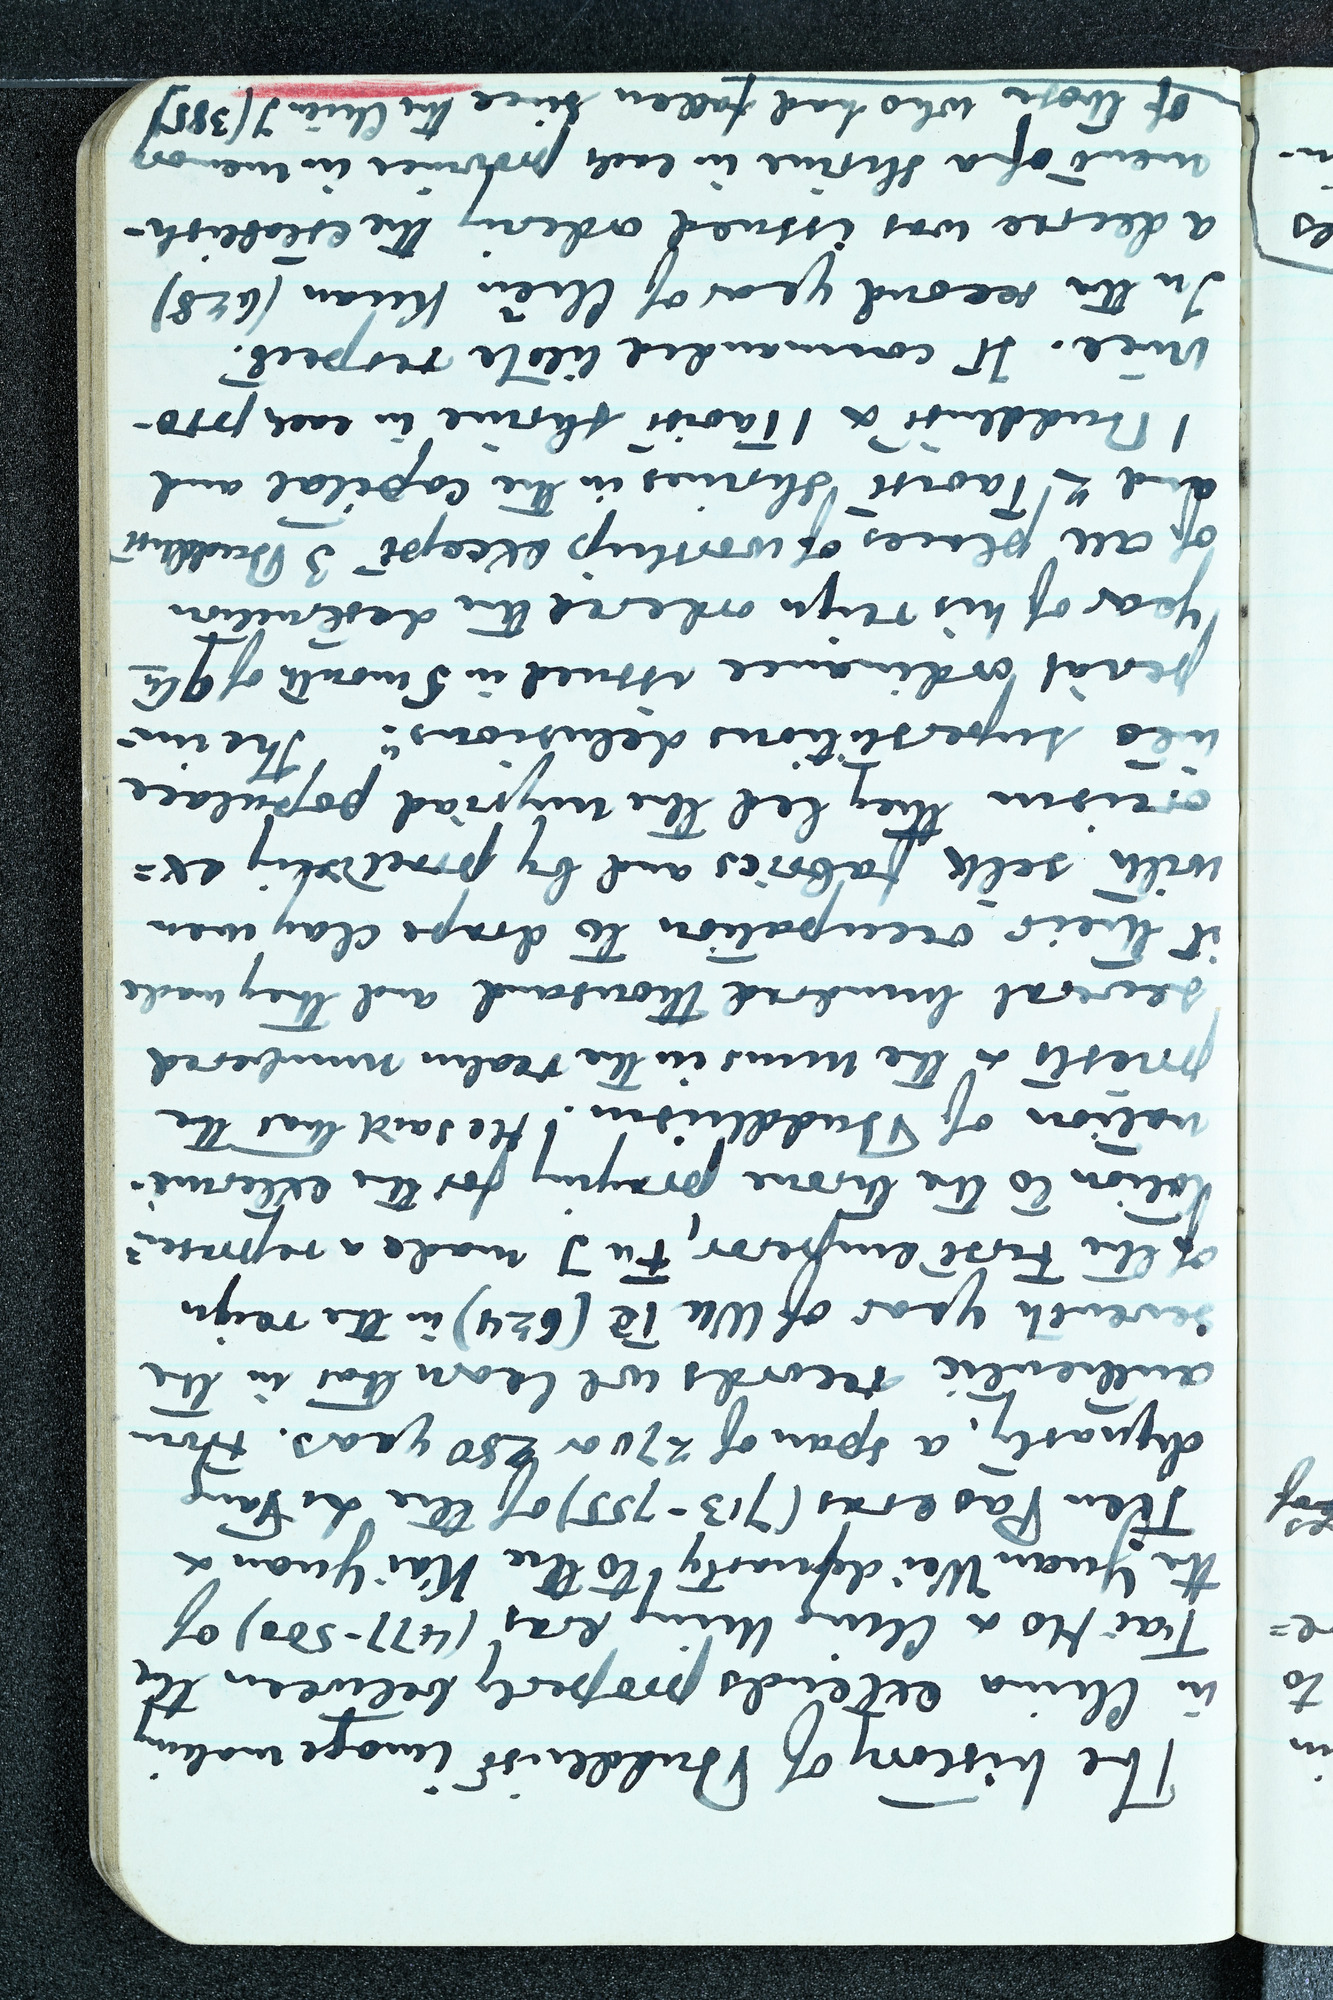 The history of Buddhist image making
in China extends properly between the
Tai Ho & Ching Ming eras (477-500) of
the Yuan Wei dynasty to the Kai Yuan &
Tien Pao eras (713-755) of the
dynasty, a span of 270 or 280 years. From
authentic records we learn that in the
seventh year of Wu Te (624) in the reign
of the First emperor, Fu I made a represen-
tation to the throne praying for the extermi-
nation of Buddhism. He said that the
priests & the nuns in the realm numbered
several hundred thousand and they made
it their occupation to drape clay men
with silk fabrics and by practising ex=
orcism they led the myriad populace
into superstitious delusions". The im-
perial ordinance issued in 5 month of 9th
year of his reign ordered the destruction
of all places of worship except 3 Buddhist
and 2 Taoist shrines in the Capital and
1 Buddhist & 1 Taoist shrine in each pro-
vince. It commanded little respect.
In the second year of Chen Kuan (628)
a decree was issued ordering the establish-
ment of a shrine in each province in memory
of those who had fallen since the Chin I (385)
in
es
es
of
re=
to
in